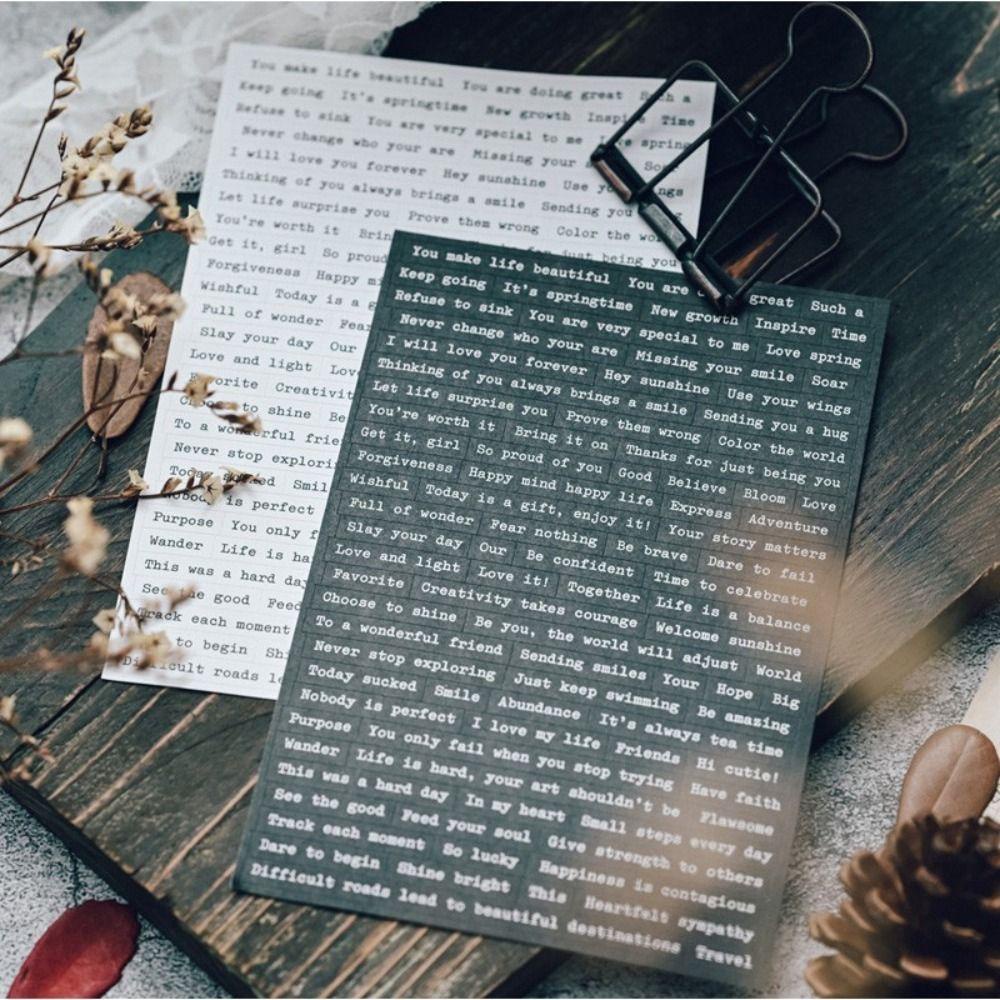 You make life beautiful You are doing great Such a
Keep going It's springtime New growth Inspi Time
Refuse to sink You are very special to me spring
Never change who your are Missing your
I will love you forever Hey sunshine Use
Thinking of you always brings a smile Sending you
Let life surprise you Prove them wrong Color the
You're worth it just being you
Get it, girl So proud
Forgiveness Happy
Wishful Today is a
Full of wonder
Slay your day Our
Love and light
Favorite
Choose to shine Be
To a wonderful
Never stop
Today sucked
Nobody is perfect
Purpose You only
Wander Life is
This was a hard day
See the good
Track each moment
to begin
Difficult roads
You make life beautiful You are great Such a
Keep going It's springtime New growth Inspire Time
Refuse to sink You are very special to me Love spring
Never change who your are Missing your smile Soar
I will love you forever Hey sunshine Use your wings
Thinking of you always brings a smile Sending you a hug
Let life surprise you Prove them wrong Color the world
You're worth it Bring it on Thanks for just being you
Get it, girl So proud of you Good Believe Bloom Love
Forgiveness Happy mind happy life Express Adventure
Wishful Today is a gift, enjoy it! Your story matters
Full of wonder Fear nothing Be brave Dare to fail
Slay your day Our Be confident Time to celebrate
Love and light Love it! Together Life is a balance
Favorite Creativity takes courage Welcome sunshine
Choose to shine Be you, the world will adjust World
To a wonderful friend Sending smiles Your Hope Big
Never stop exploring Just keep swimming Be amazing
Today sucked Smile Abundance It's always tea time
Nobody is perfect I love my life Friends Hi cutie!
Purpose You only fail when you stop trying Have faith
Wander Life is hard, your art shouldn't be Flawsome
This was a hard day In my heart Small steps every day
See the good Feed your soul Give strength to others
Track each moment So lucky Happiness is contagious
Dare to begin Shine bright This Heartfelt sympathy
Difficult roads lead to beautiful destinations Travel